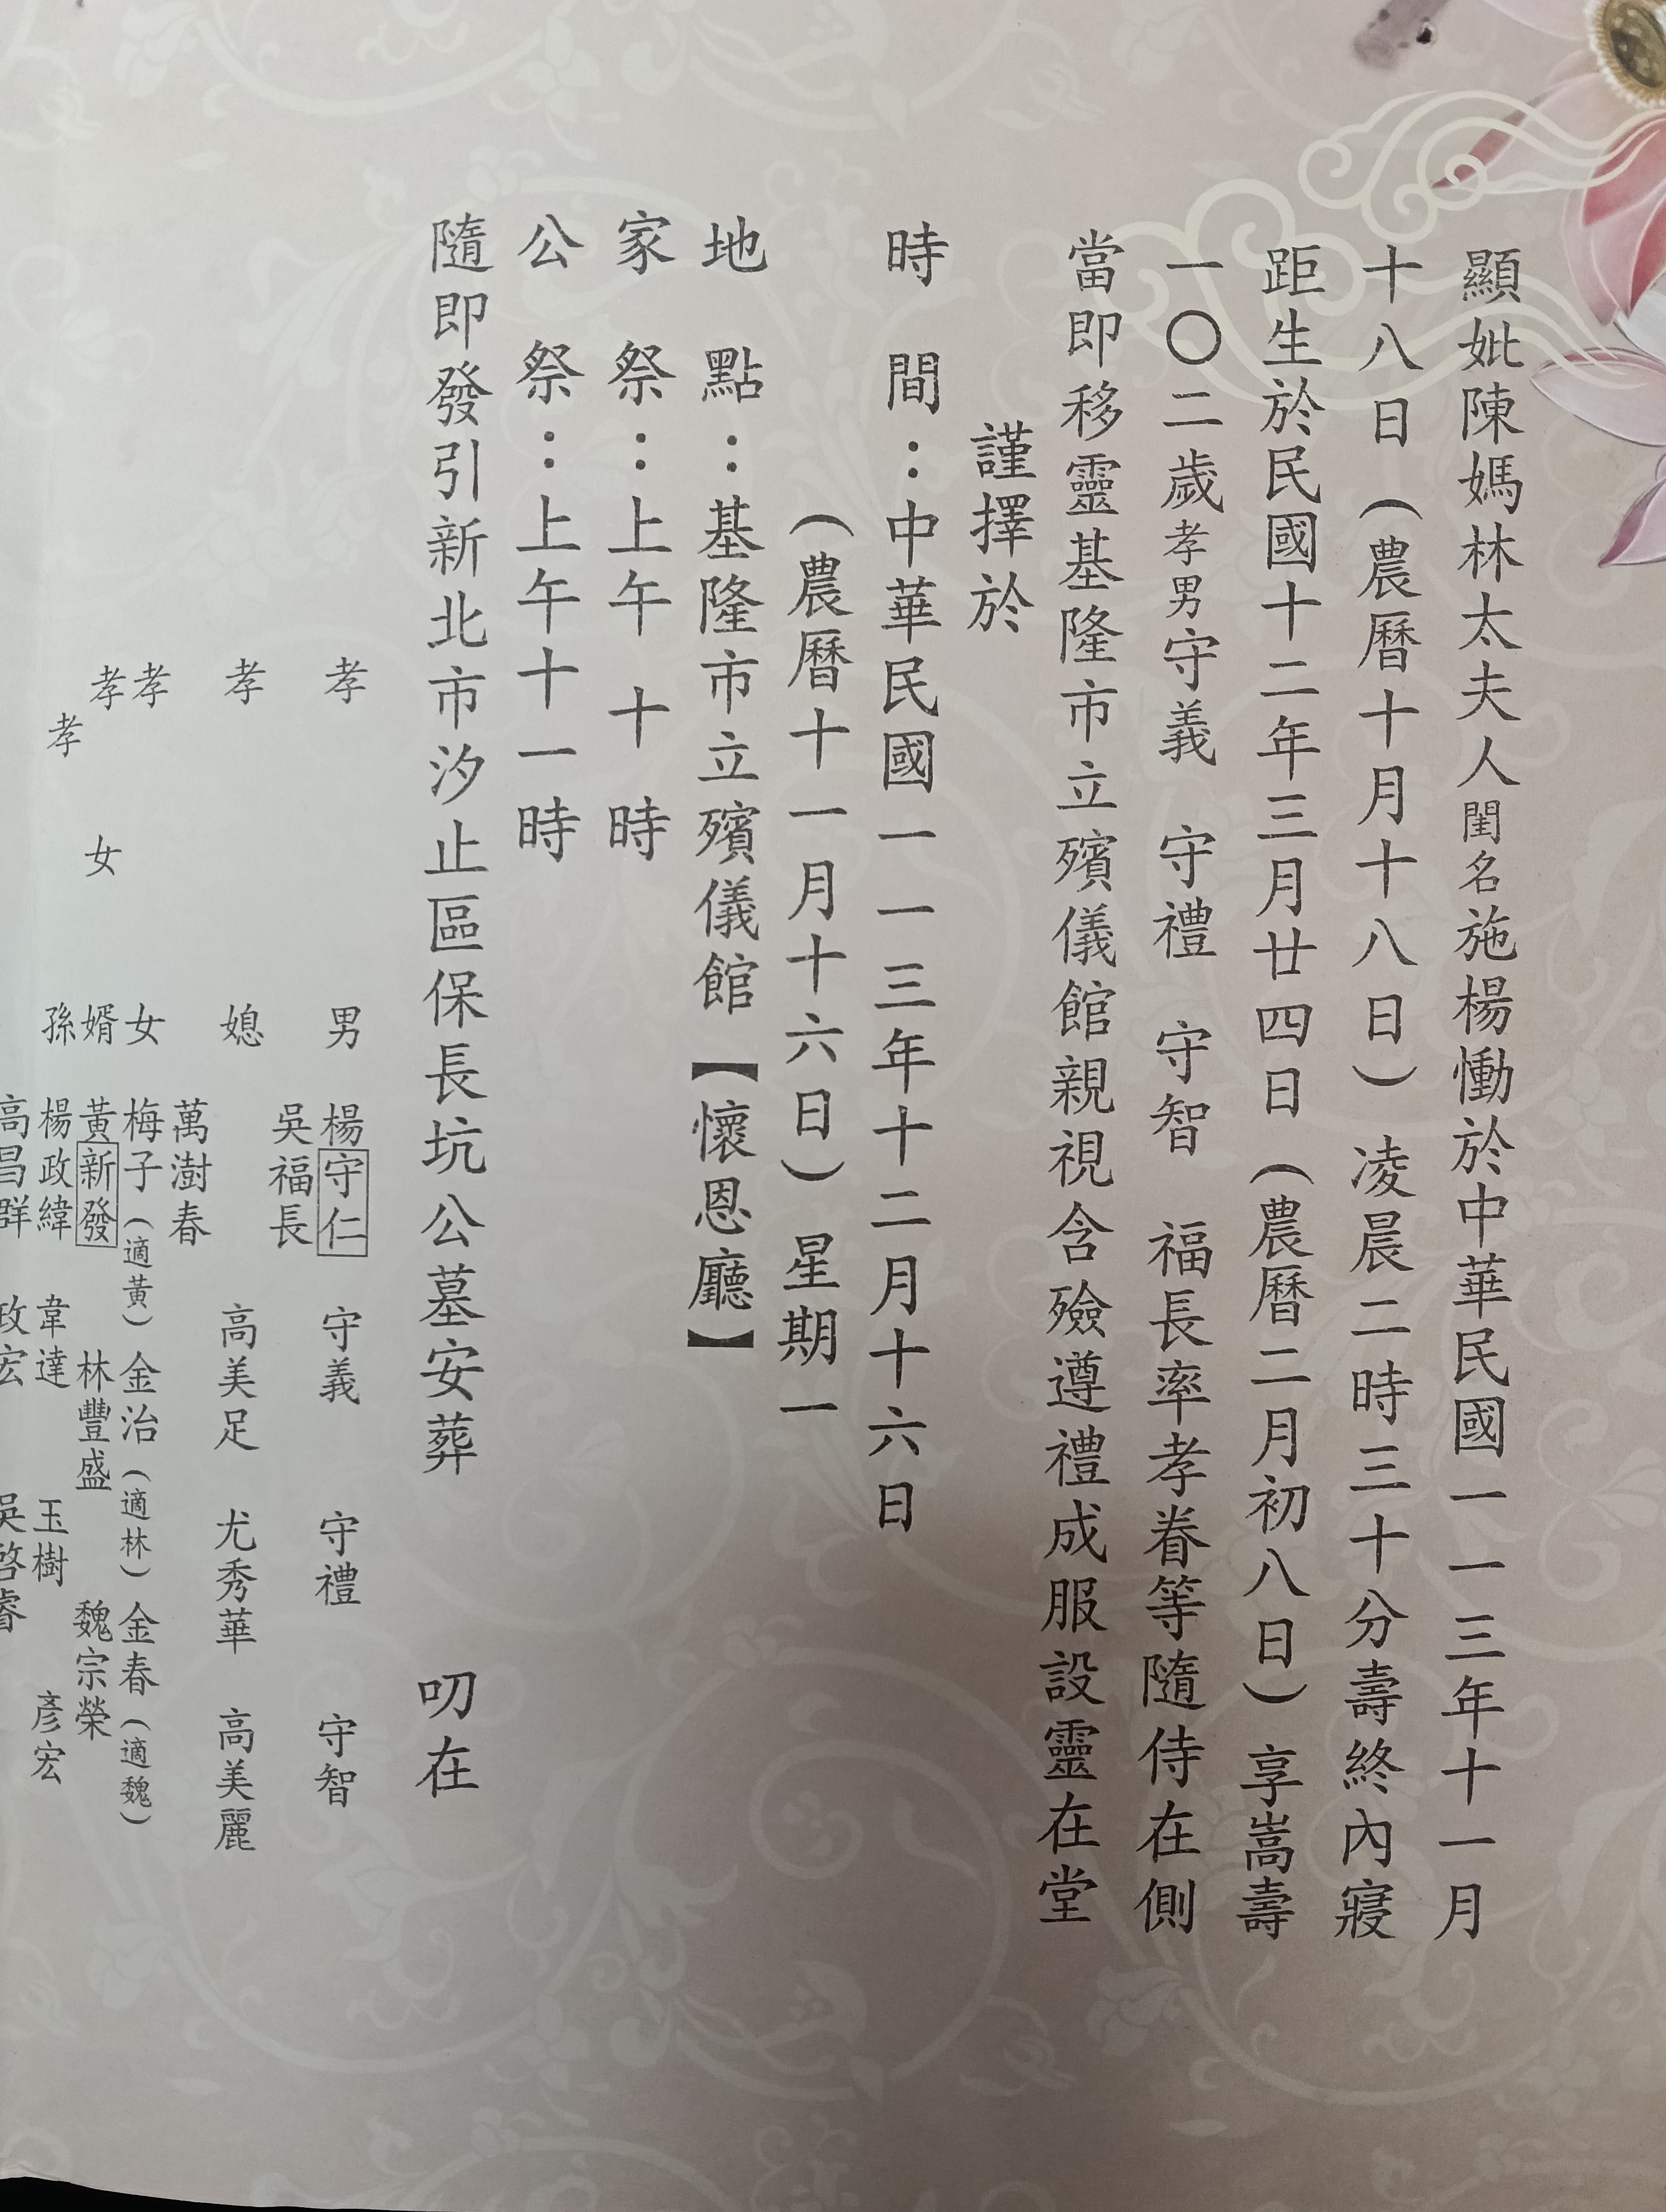 顯妣陳媽林太夫人閨名施楊慟於中華民國一一三年十一月
十八日（農曆十月十八日）凌晨二時三十分壽終內寢
距生於民國十二年三月廿四日（農曆二月初八日）享嵩壽
一〇二歲孝男守義 守禮 守智 福長率孝眷等隨侍在側
當即移靈基隆市立殯儀館親視含殮遵禮成服設靈在堂
謹擇於
時 間：中華民國一一三年十二月十六日
（農曆十一月十六日）星期一
地 點：基隆市立殯儀館【懷恩廳】
家 祭：上午 十 時
公 祭：上午十一時
隨即發引新北市汐止區保長坑公墓安葬 叨在
孝 男 楊守仁 守義 守禮 守智
吳福長
孝 媳 高美足 尤秀華 高美麗
萬澍春
孝 女 梅子（適黃） 金治（適林） 金春（適魏）
孝 女 婿 黃新發 林豐盛 魏宗榮
孝 孫 楊政緯 韋達 玉樹 彥宏
高昌群 政宏 吳啓睿